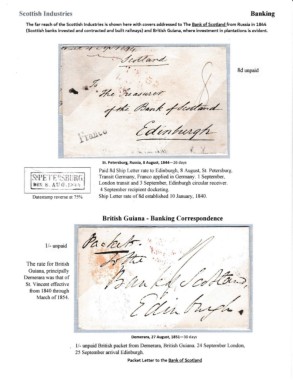 Scottish Industries
Banking
The far reach of the Scottish Industries is shown here with covers addressed to The Bank of Scotland from Russia in 1844
(Scottish banks invested and contracted and built railways) and British Guiana, where investment in plantations is evident.
Scotland
8d unpaid
To
The Treasurer
of the Bank of Scotland
Edinburgh
Franco
St. Petersburg, Russia, 8 August, 1844—26 days
Paid 8d Ship Letter rate to Edinburgh, 8 August, St. Petersburg.
Transit Germany, Franco applied in Germany. 1 September,
London transit and 3 September, Edinburgh circular receiver.
4 September recipient docketing.
Ship Letter rate of 8d established 10 January, 1840.
ST PETERSBURG
8 AUG.
Datestamp reverse at 75%
British Guiana - Banking Correspondence
1/- unpaid
The rate for British
Guiana, principally
Demerara was that of
St. Vincent effective
from 1840 through
March of 1854.
Packet
To the
Bank of Scotland,
Edinburgh.
Demerara, 27 August, 1851—30 days
1/- unpaid British packet from Demerara, British Guiana. 24 September London,
25 September arrival Edinburgh.
Packet Letter to the Bank of Scotland